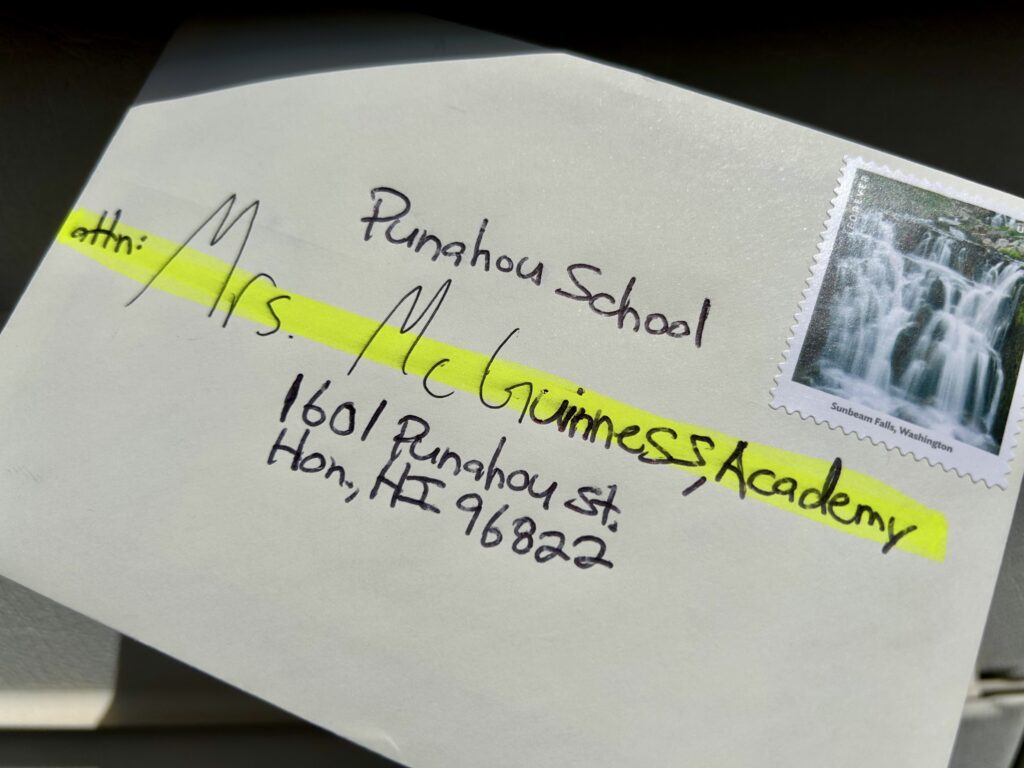 Punahou School
attn: Mrs. McGuinness, Academy
1601 Punahou St.
Hon., HI 96822
FOREVER
Sunbeam Falls, Washington